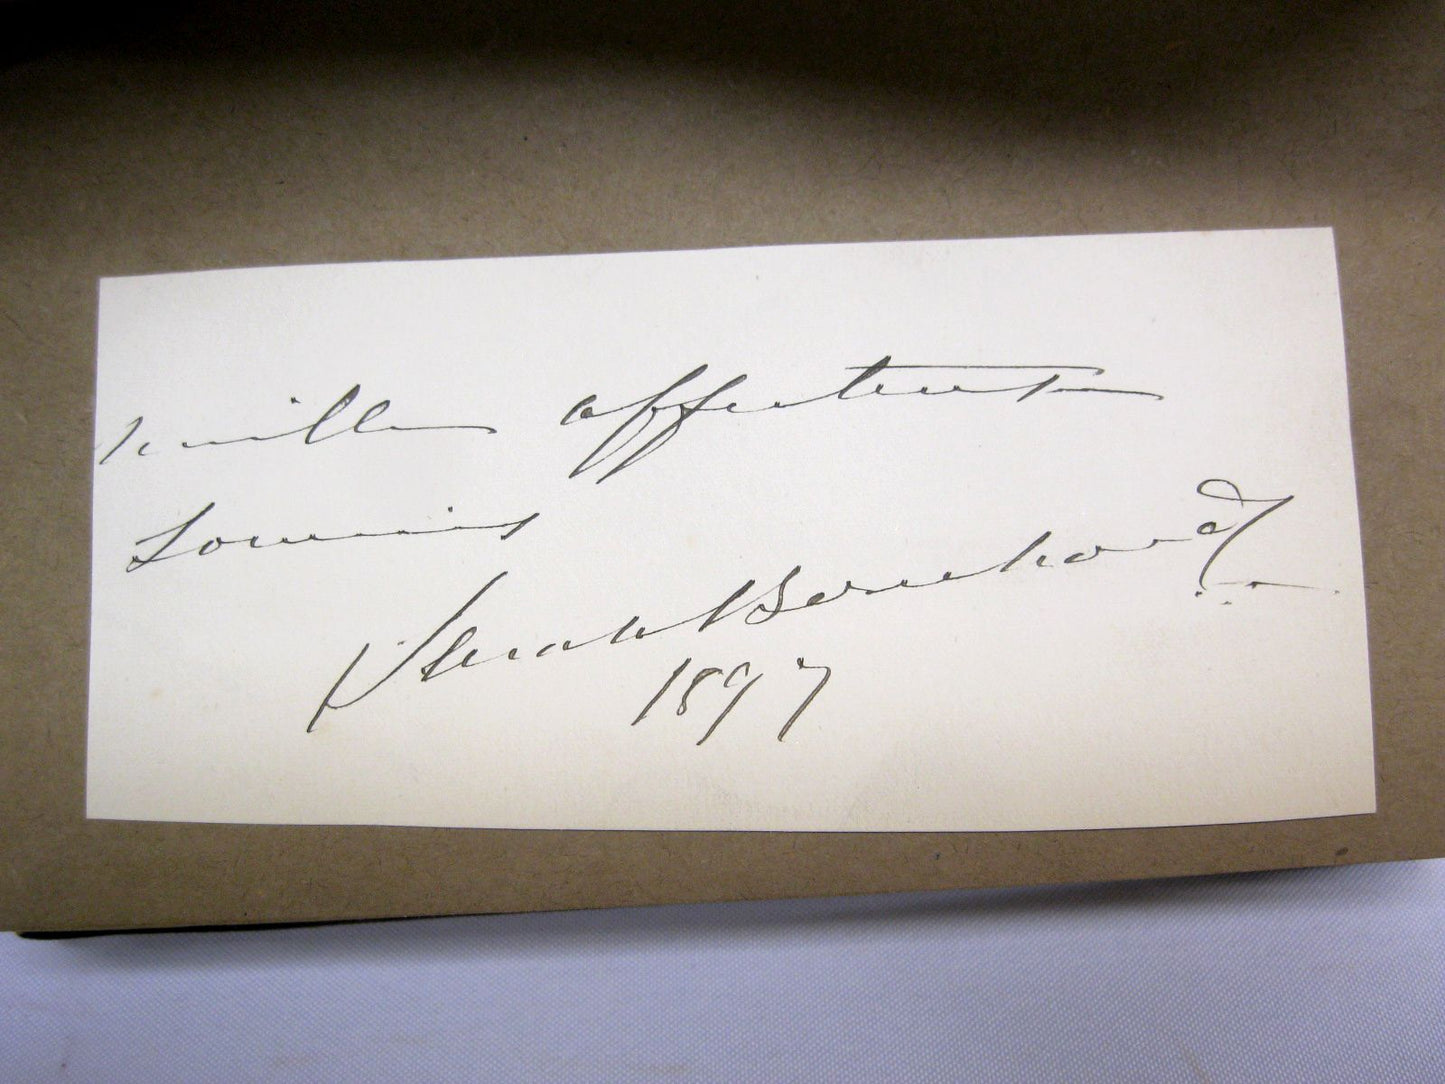 mille affectueux
Souvenirs
Sarah Bernhardt
1897